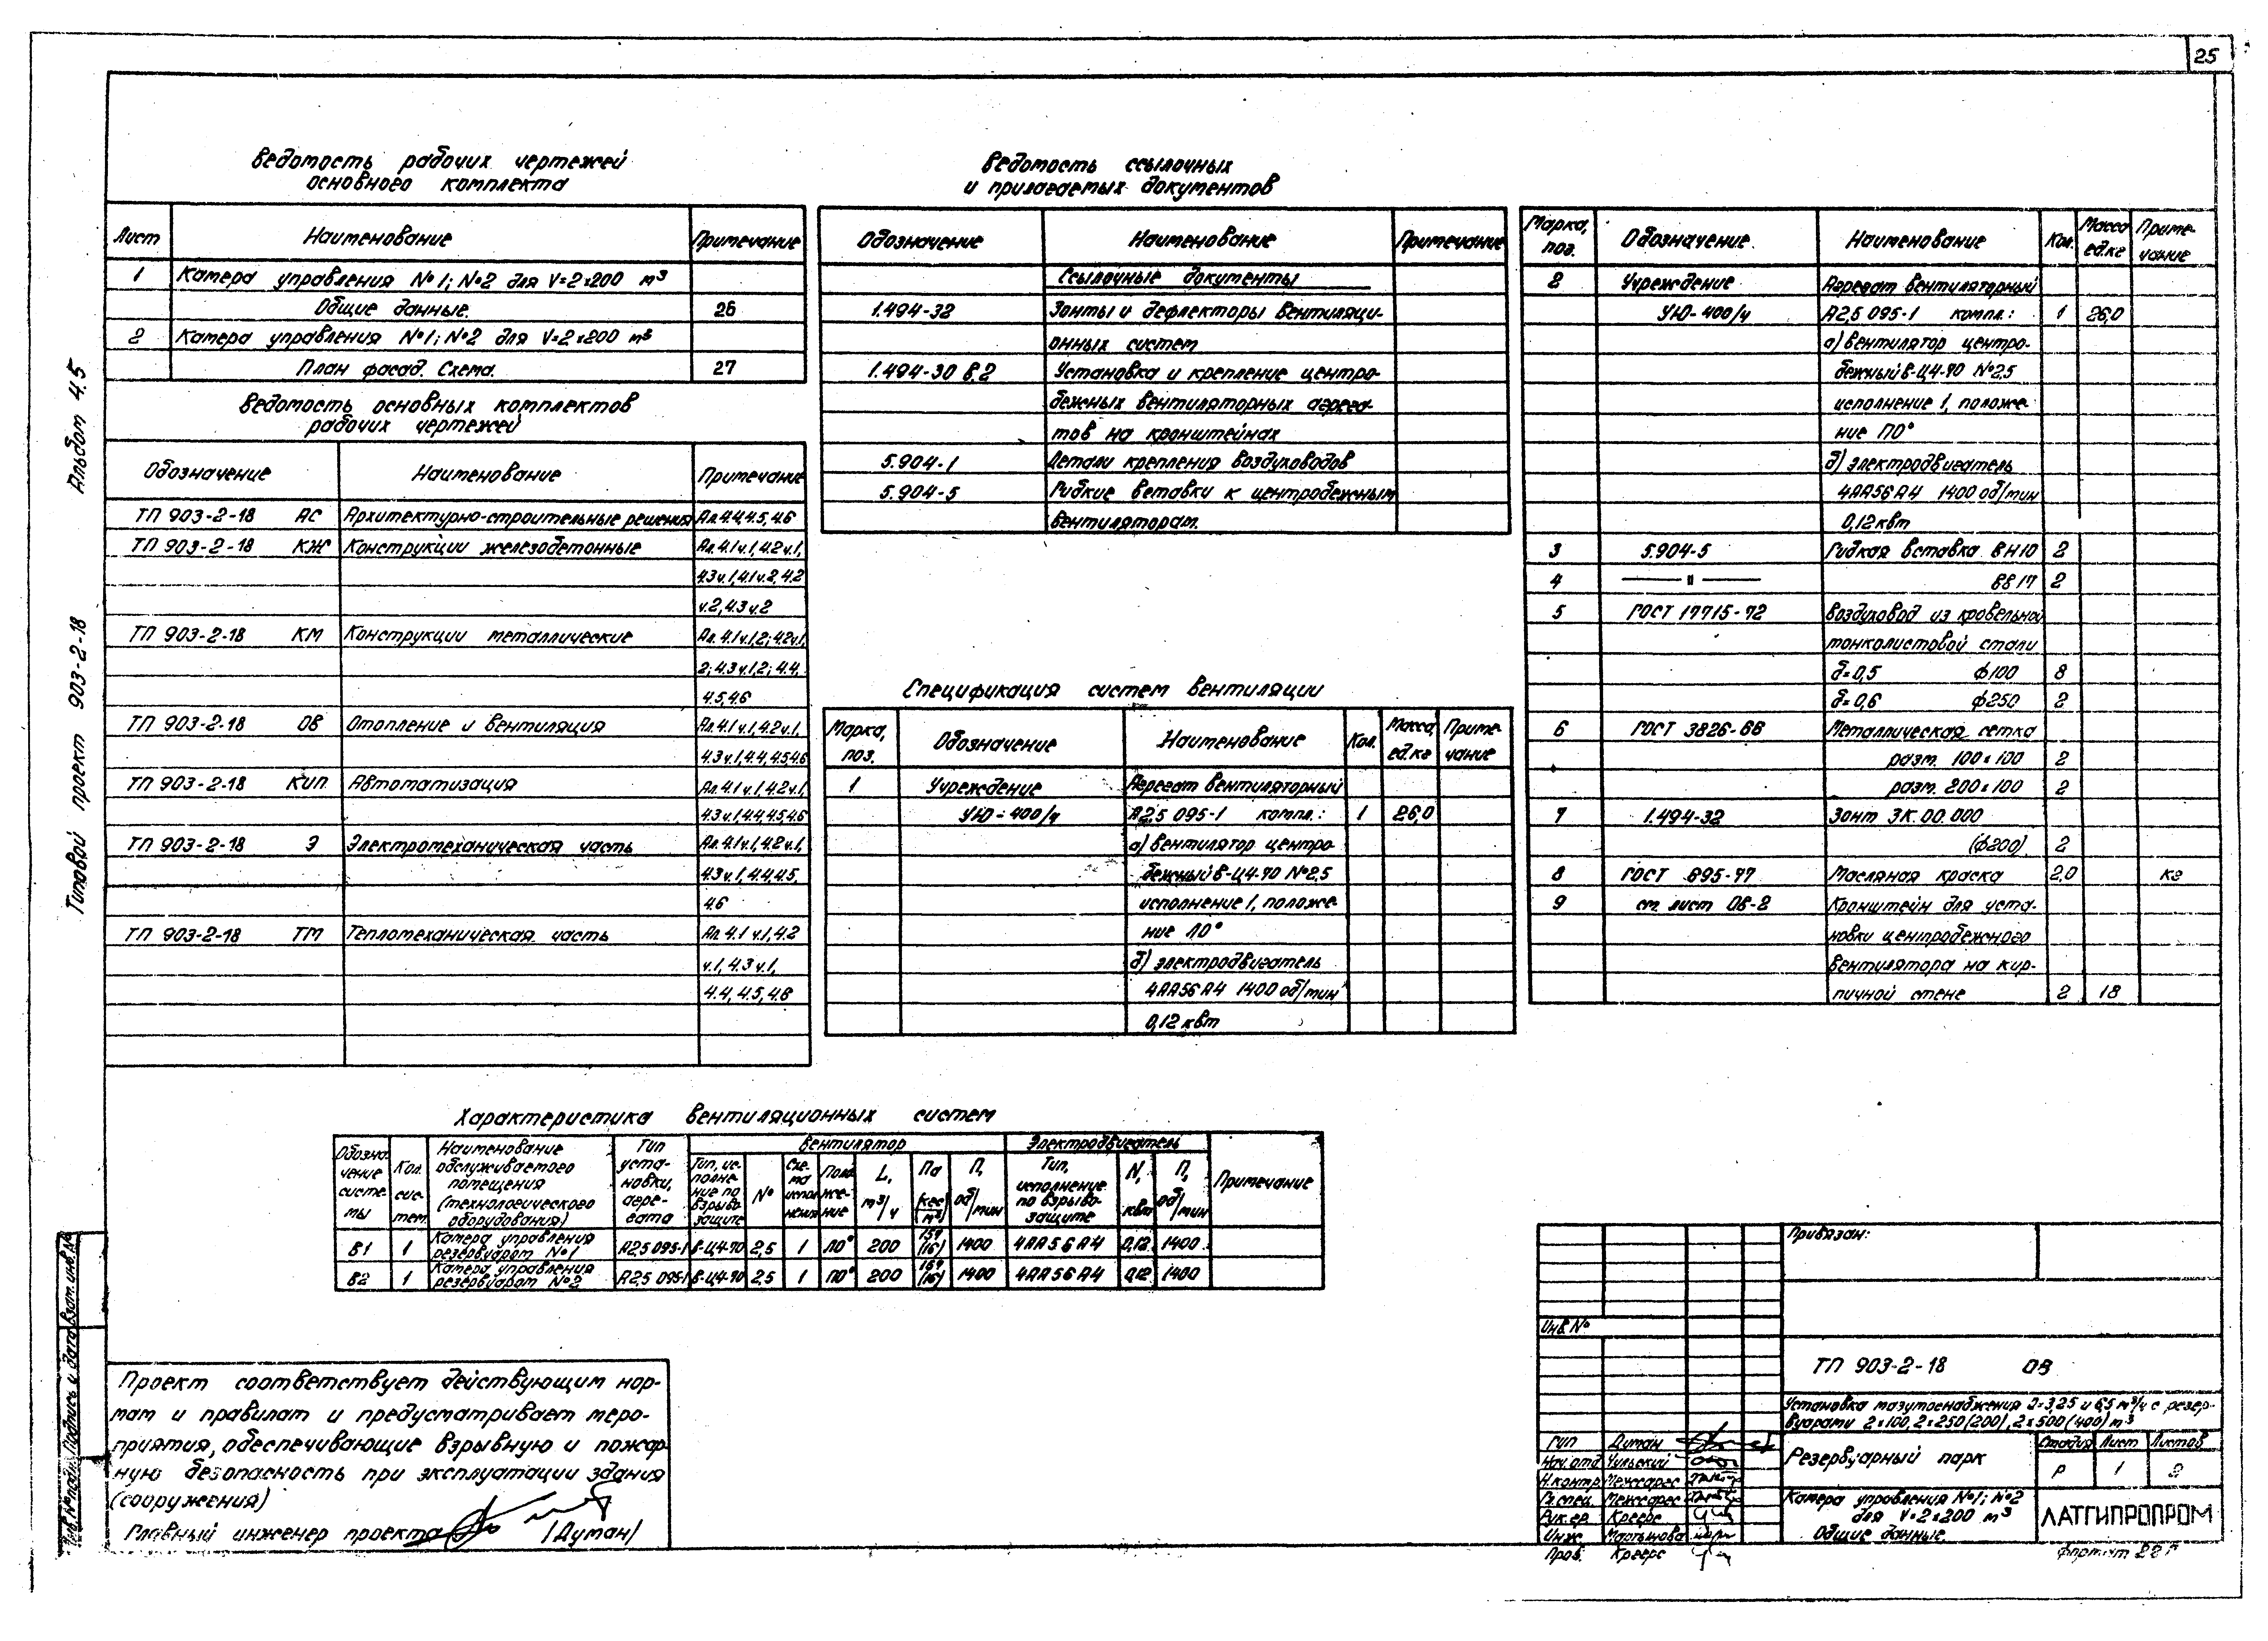 25
Ведомость рабочих чертежей
основного комплекта
Лист Наименование Примечание
1 Камера управления №1; №2 для V=2×200 м³
Общие данные. 26
2 Камера управления №1; №2 для V=2×200 м³
План фасад. Схема. 27
Ведомость основных комплектов
рабочих чертежей
Обозначение Наименование Примечание
ТП 903-2-18 АС Архитектурно-строительные решения Ал.4.4,4.5,4.6
ТП 903-2-18 КЖ Конструкции железобетонные Ал.4.1ч.1,4.2ч.1,
4.3ч.1,4.1ч.2,4.2
ч.2,4.3ч.2
ТП 903-2-18 КМ Конструкции металлические Ал.4.1ч.1,2;4.2ч.1,
2;4.3ч.1,2;4.4,
4.5,4.6
ТП 903-2-18 ОВ Отопление и вентиляция Ал.4.1ч.1,4.2ч.1,
4.3ч.1,4.4,4.5,4.6
ТП 903-2-18 КИП Автоматизация Ал.4.1ч.1,4.2ч.1,
4.3ч.1,4.4,4.5,4.6
ТП 903-2-18 Э Электромеханическая часть Ал.4.1ч.1,4.2ч.1,
4.3ч.1,4.4,4.5,
4.6
ТП 903-2-18 ТМ Тепломеханическая часть Ал.4.1ч.1,4.2
ч.1,4.3ч.1,
4.4,4.5,4.6
Ведомость ссылочных
и прилагаемых документов
Обозначение Наименование Примечание
Ссылочные документы
1.494-32 Зонты и дефлекторы вентиляци-
онных систем
1.494-30 в.2 Установка и крепление центро-
бежных вентиляторных агрега-
тов на кронштейнах
5.904-1 Детали крепления воздуховодов
5.904-5 Гибкие вставки к центробежным
вентиляторам.
Спецификация систем вентиляции
Марка, поз. Обозначение Наименование Кол. Масса, ед.кг Приме-чание
1 Учреждение Агрегат вентиляторный
УЮ-400/4 А2,5 095-1 компл.: 1 26,0
а) вентилятор центро-
бежный В-Ц4-70 №2,5
исполнение 1, положе-
ние Л0°
б) электродвигатель
4АА56А4 1400 об/мин
0,12 квт
Марка, поз. Обозначение Наименование Кол. Масса ед.кг Приме-чание
2 Учреждение Агрегат вентиляторный
УЮ-400/4 А2,5 095-1 компл.: 1 26,0
а) вентилятор центро-
бежный В-Ц4-70 №2,5
исполнение 1, положе-
ние П0°
б) электродвигатель
4АА56А4 1400 об/мин
0,12 квт
3 5.904-5 Гибкая вставка ВН10 2
4 —— " —— ВВ17 2
5 ГОСТ 17715-72 Воздуховод из кровельной
тонколистовой стали
δ=0,5 ф100 8
δ=0,6 ф250 2
6 ГОСТ 3826-66 Металлическая сетка
разм. 100×100 2
разм. 200×100 2
7 1.494-32 Зонт ЗК.00.000
(ф200) 2
8 ГОСТ 695-77 Масляная краска 2,0 кг
9 см. лист ОВ-2 Кронштейн для уста-
новки центробежного
вентилятора на кир-
пичной стене 2 18
Характеристика вентиляционных систем
Обозна-чение систе-мы Кол. сис-тем Наименование обслуживаемого помещения (технологического оборудования) Тип уста-новки, агре-гата Вентилятор Электродвигатель Примечание
Тип, ис-полне-ние по взрыво-защите № Схе-ма испол-нения Поло-же-ние L, м³/ч Па (кгс/м²) П, об/мин Тип, исполнение по взрыво-защите N, квт П, об/мин
В1 1 Камера управления резервуаром №1 А2,5 095-1 В-Ц4-70 2,5 1 Л0° 200 157 (16) 1400 4АА56А4 0,12 1400
В2 1 Камера управления резервуаром №2 А2,5 095-1 В-Ц4-70 2,5 1 П0° 200 (16) 1400 4АА56А4 0,12 1400
Проект соответствует действующим нор-
мам и правилам и предусматривает меро-
приятия, обеспечивающие взрывную и пожар-
ную безопасность при эксплуатации здания
(сооружения)
Главный инженер проекта /Думан/
Привязан:
Инв №
ТП 903-2-18 ОВ
Установка мазутоснабжения Q=3,25 и 6,5 м³/ч с резер-
вуарами 2×100, 2×250(200), 2×500(400) м³
Гип Думан
Нач.отд Чульский
Н.контр. Межсарес
Гл.спец. Межсарес
Рук.гр. Креерс
Инж. Мартынова
Пров. Креерс
Резервуарный парк
Стадия Лист Листов
Р 1 2
Камера управления №1; №2
для V=2×200 м³
Общие данные.
ЛАТГИПРОПРОМ
Формат 22Г
Типовой проект 903-2-18 Альбом 4.5
Инв.№ подл. Подпись и дата Взам. инв.№